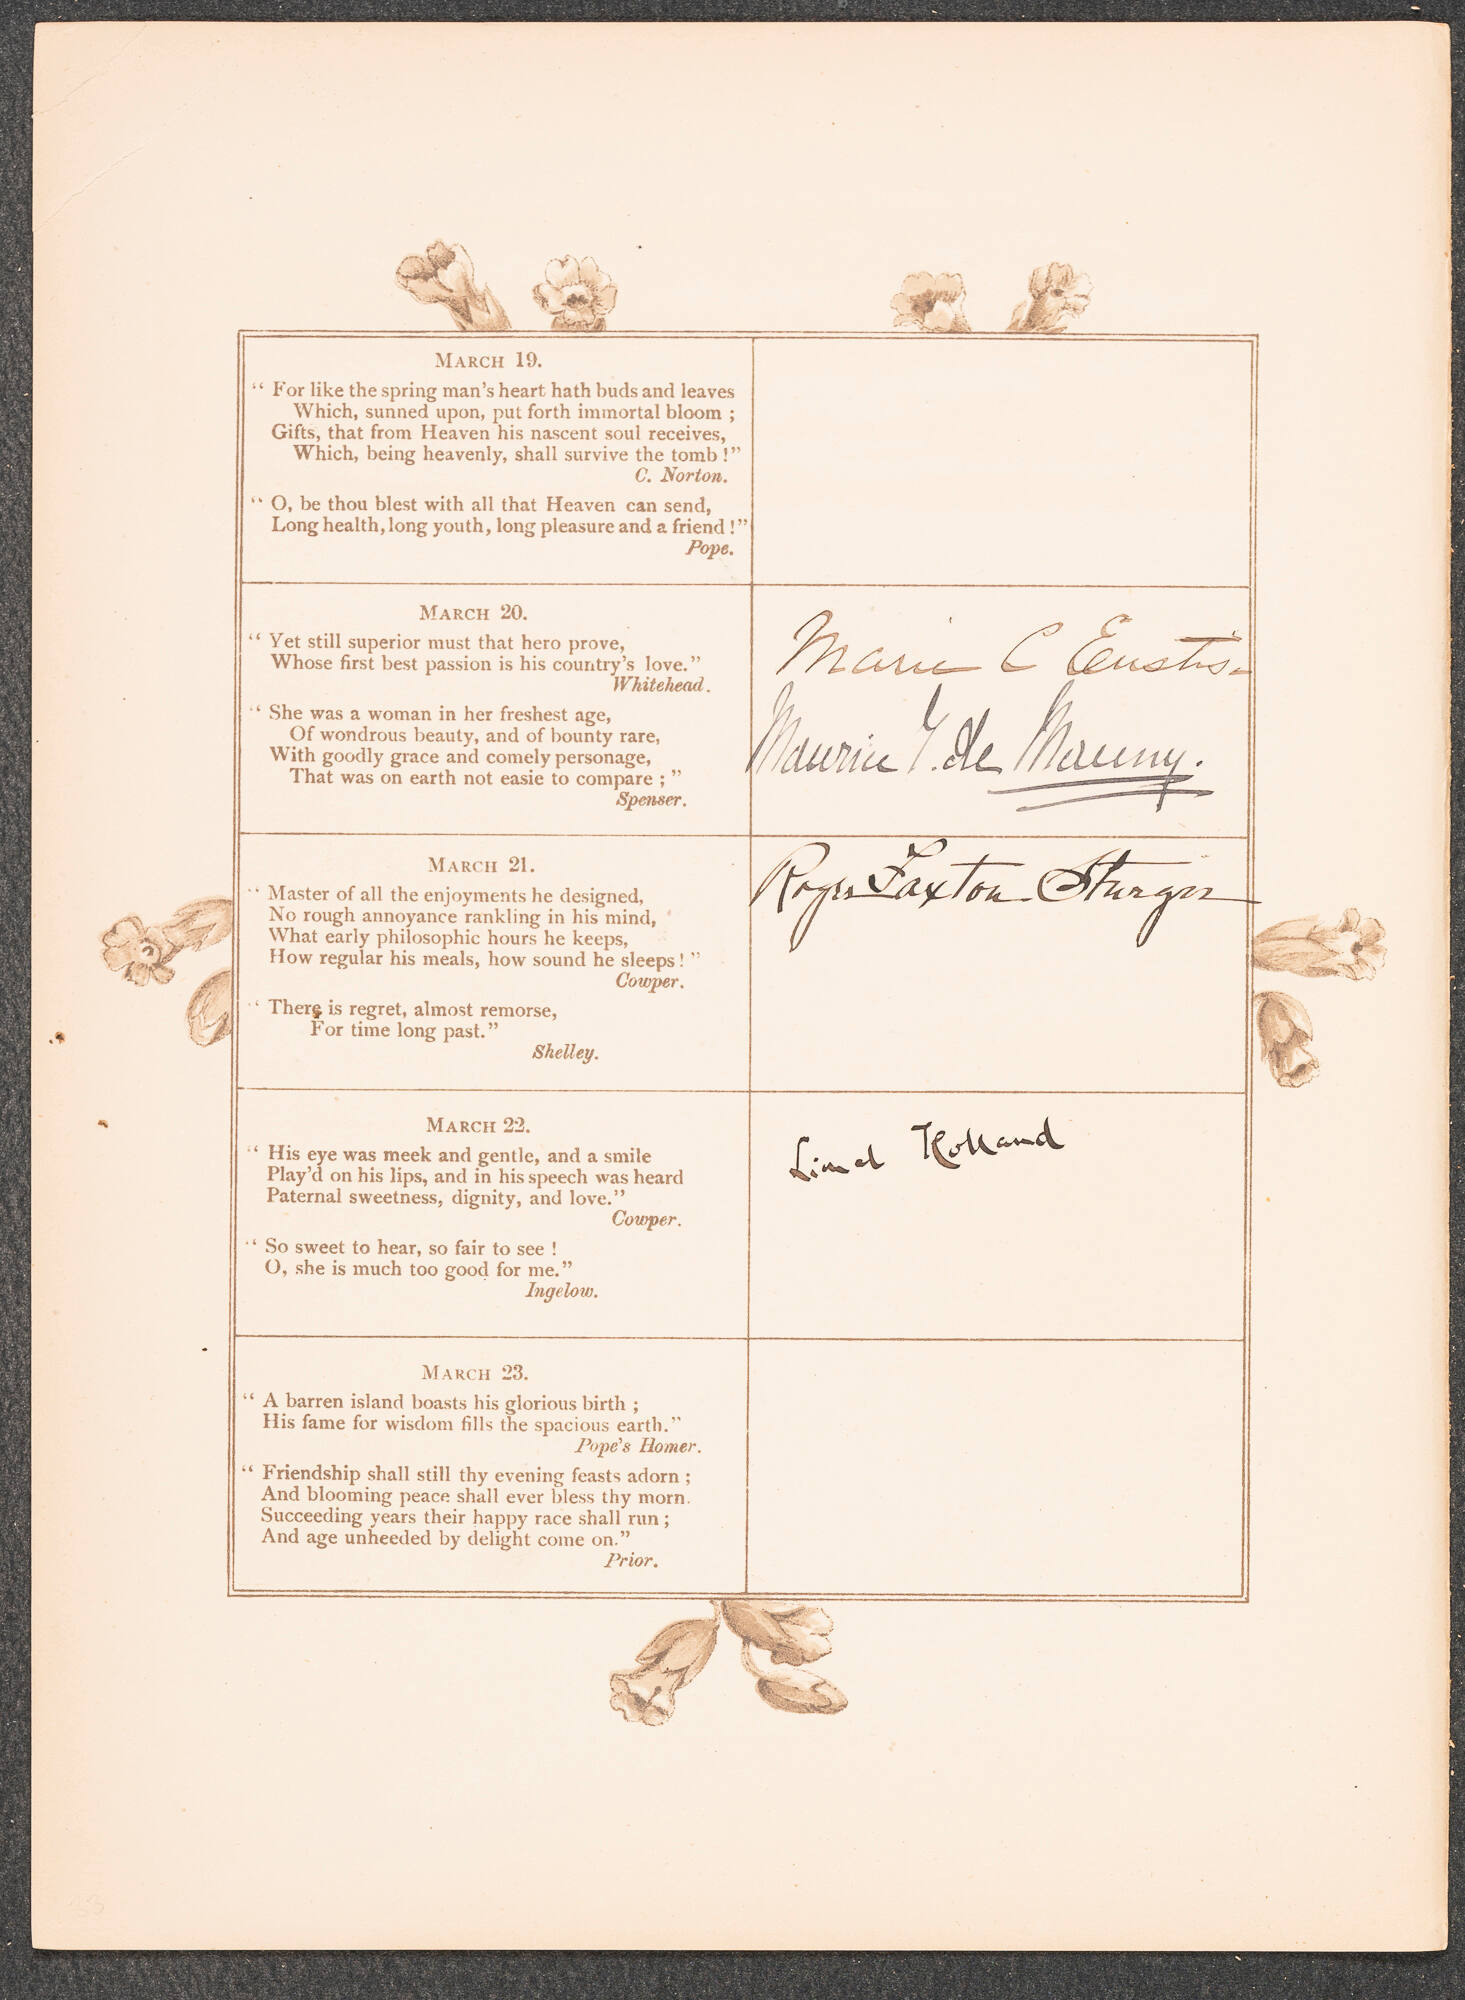 MARCH 19.
“ For like the spring man's heart hath buds and leaves
Which, sunned upon, put forth immortal bloom ;
Gifts, that from Heaven his nascent soul receives,
Which, being heavenly, shall survive the tomb !”
C. Norton.
“ O, be thou blest with all that Heaven can send,
Long health, long youth, long pleasure and a friend !”
Pope.
MARCH 20.
“ Yet still superior must that hero prove,
Whose first best passion is his country's love.”
Whitehead.
“ She was a woman in her freshest age,
Of wondrous beauty, and of bounty rare,
With goodly grace and comely personage,
That was on earth not easie to compare ; ”
Spenser.
Marie C Eustis
Maurice T. de Mauny.
MARCH 21.
“ Master of all the enjoyments he designed,
No rough annoyance rankling in his mind,
What early philosophic hours he keeps,
How regular his meals, how sound he sleeps ! ”
Cowper.
“ There is regret, almost remorse,
For time long past.”
Shelley.
Roger Faxton Sturgis
MARCH 22.
“ His eye was meek and gentle, and a smile
Play'd on his lips, and in his speech was heard
Paternal sweetness, dignity, and love.”
Cowper.
“ So sweet to hear, so fair to see !
O, she is much too good for me.”
Ingelow.
Lionel Holland
MARCH 23.
“ A barren island boasts his glorious birth ;
His fame for wisdom fills the spacious earth.”
Pope's Homer.
“ Friendship shall still thy evening feasts adorn ;
And blooming peace shall ever bless thy morn.
Succeeding years their happy race shall run ;
And age unheeded by delight come on.”
Prior.